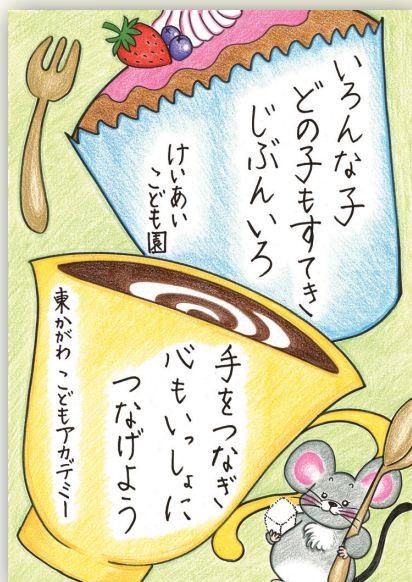 いろんな子
どの子もすてき
じぶんいろ
けいあい
こども園
手をつなぎ
心もいっしょに
つなげよう
東かがわ こどもアカデミー